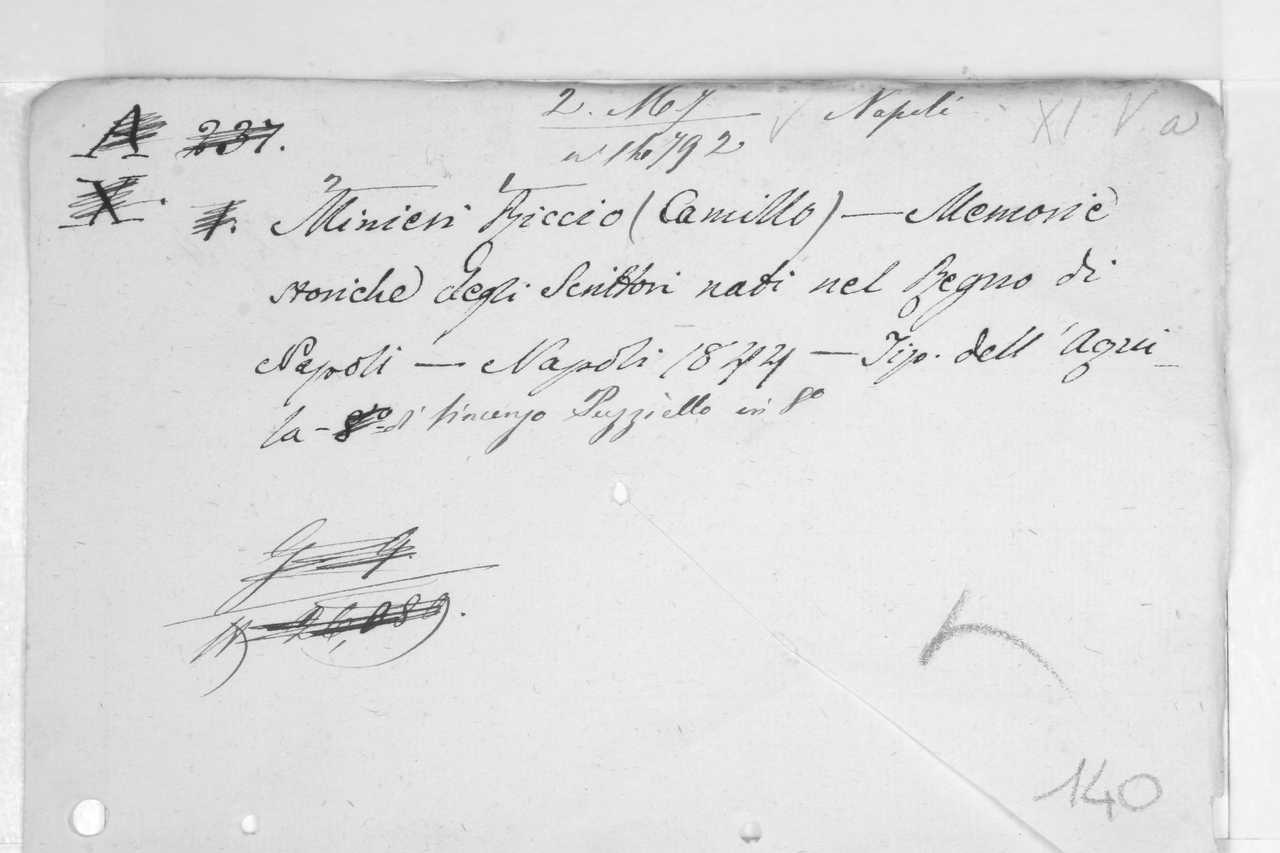 A 237.
2. M 7
Napoli
XI V a
X 1.
Minieri Riccio (Camillo) — Memorie
storiche degli Scrittori nati nel Regno di
Napoli — Napoli 1844 — Tip. dell'Aqui-
la - di Vincenzo Puzziello in 8º
140